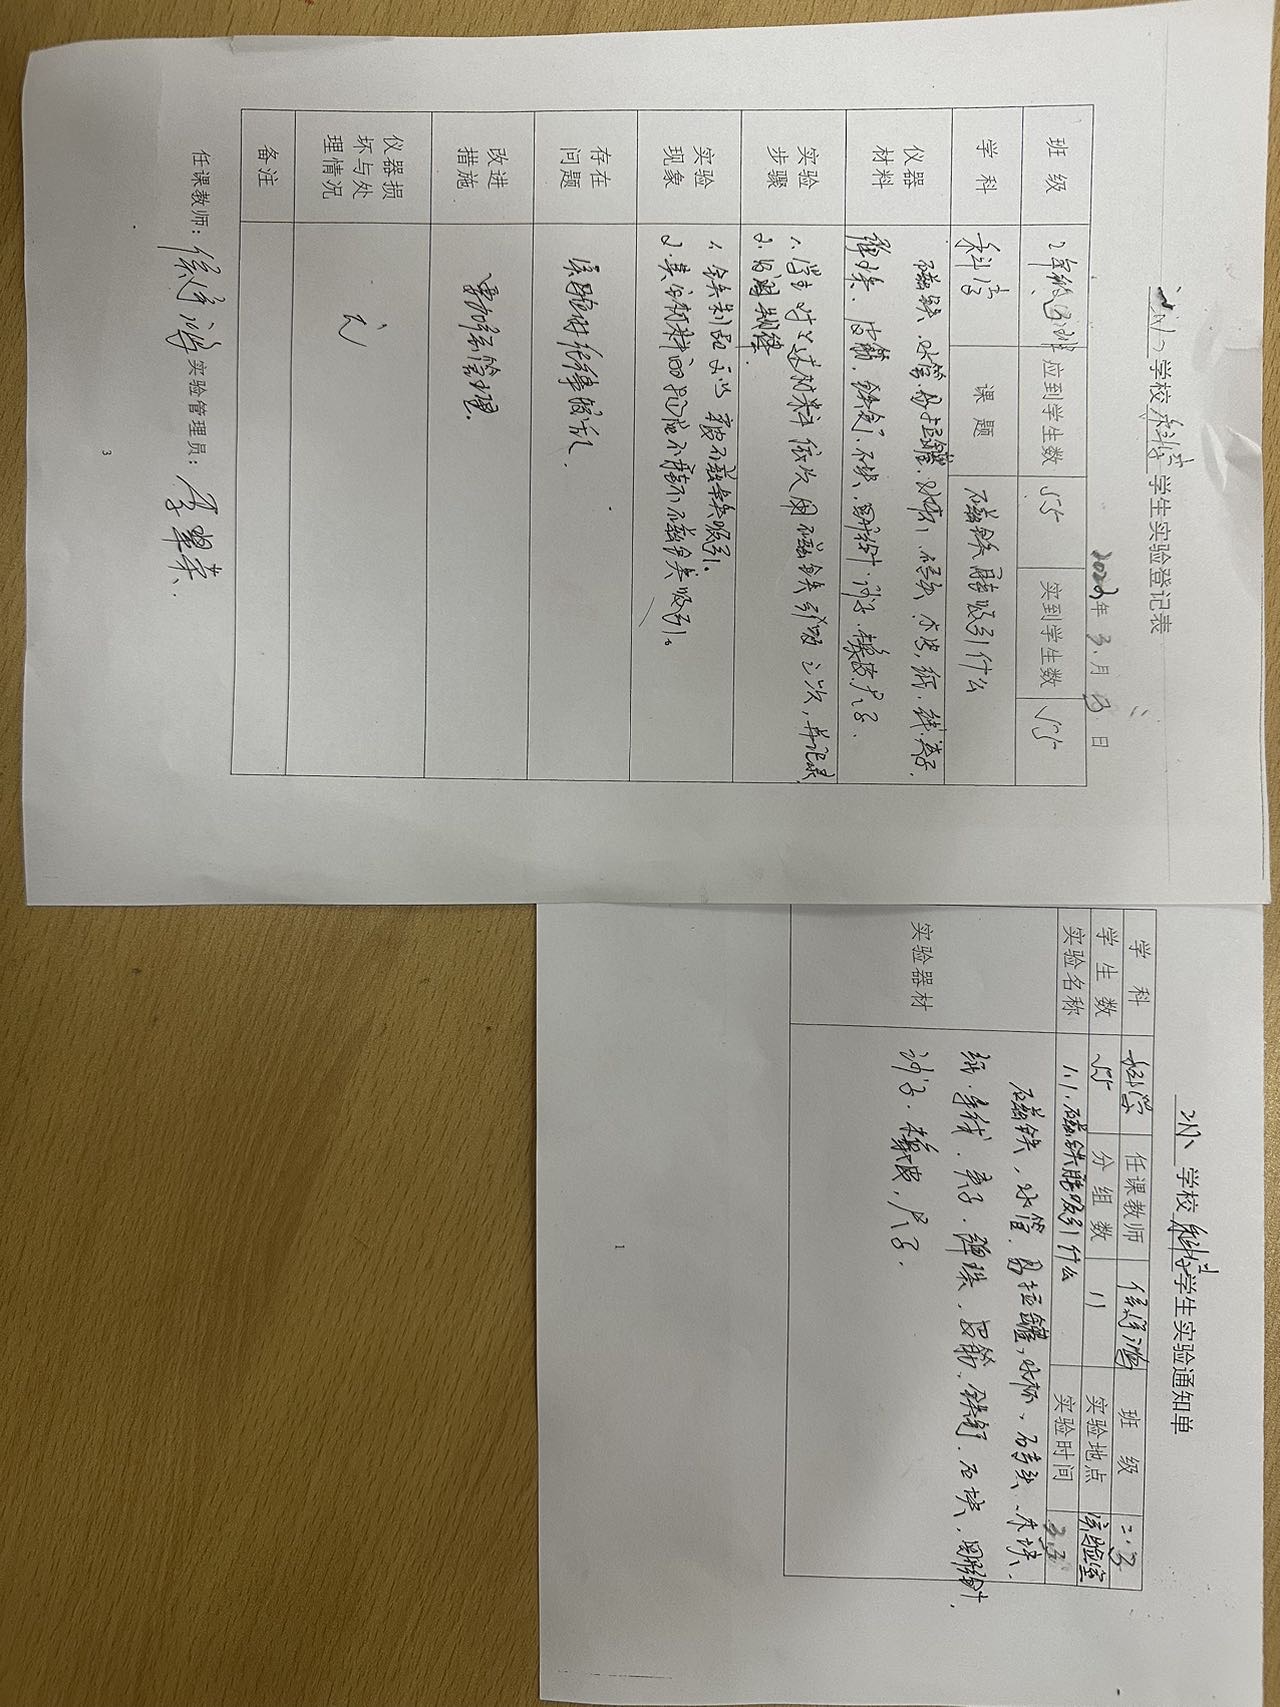 学校科学学生实验登记表
2022年3月3日
班级 2年级3班 应到学生数 55 实到学生数 55
学科 科学 课题 磁铁能吸引什么
仪器材料 磁铁、水管、易拉罐、水杯、砖头、木块、纸、线、夹子、
弹珠、皮筋、铁钉、石块、回形针、沙子、橡皮、尺子.
实验步骤 1、学生对上述材料依次用磁铁吸三次,并记录
2.
实验现象 1、铁制品可以被磁铁吸引。
2、其余材料不能被磁铁吸引。
存在问题 实验时纪律混乱.
改进措施 要加强管理.
仪器损坏与处理情况 无
备注
任课教师: 实验管理员:
3
学校科学学生实验通知单
学科 科学 任课教师 班级 二.3
学生数 55 分组数 11 实验地点 实验室
实验名称 1.1.磁铁能吸引什么 实验时间 3.3
实验器材 磁铁、水管、易拉罐、水杯、石头、木块、
纸、毛线、夹子、弹珠、皮筋、铁钉、石块、回形针、
沙子、橡皮、尺子.
1